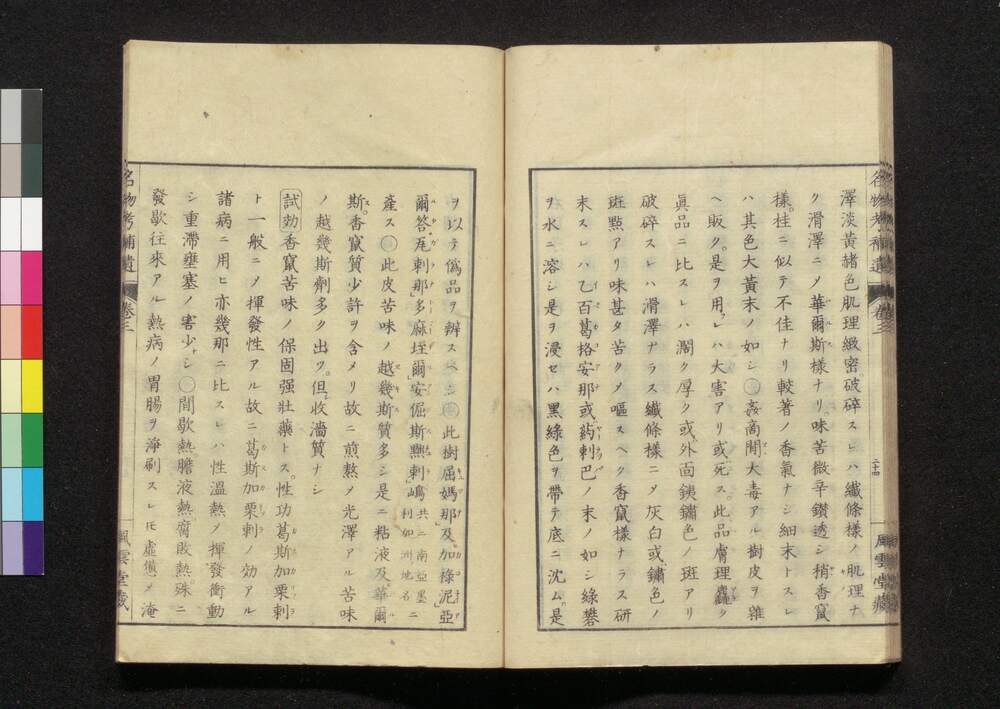 澤淡黃赭色肌理緻密破碎スレハ纖條樣ノ肌理ナ
ク滑澤ニ〆華爾斯樣ナリ味苦微辛鑽透シ稍香竄
樣桂ニ似テ不佳ナリ較著ノ香氣ナシ細末トスレ
ハ其色大黃末ノ如シ○姦商間大毒アル樹皮ヲ雜
ヘ販ク是ヲ用レハ大害アリ或死ス此品膚理麤
眞品ニ比スレハ濶ク厚ク或外面銕鏽色ノ斑アリ
破碎スレハ滑澤ナラス纖條樣ニ〆灰白或鏽色ノ
斑點アリ味甚タ苦ク〆嘔スヘク香竄樣ナラス研
末スレハ乙百葛格安那或葯剌巴ノ末ノ如シ綠礬
ヲ水ニ溶シ是ヲ浸セハ黑綠色ヲ帶テ底ニ沈ム是
名物考補遺 卷三 二十四 風雲堂藏
ヲ以テ僞品ヲ辨スヘシ○此樹屈嫣那及加祿泥亞
爾答尾剌那多麻垤爾安倔斯黙剌嶋共ニ南亞墨利加洲地名ニ
產ス○此皮苦味ノ越幾斯質多シ是ニ粘液及華爾
斯香竄質少許ヲ含メリ故ニ煎熬〆光澤アル苦味
ノ越幾斯劑多ク出ツ但收濇質ナシ
試効香竄苦味ノ保固强壯藥トス性功葛斯加栗剌
ト一般ニ〆揮發性アル故ニ葛斯加栗剌ノ効アル
諸病ニ用ヒ亦幾那ニ比スレハ性溫熱ノ揮發衝動
シ重滯壅塞ノ害少ナシ○間歇熱膽液熱腐敗熱殊ニ
發歇往來アル熱病ノ胃腸ヲ淨刷スレ𪜈虛憊〆淹
名物考補遺 卷三 風雲堂藏